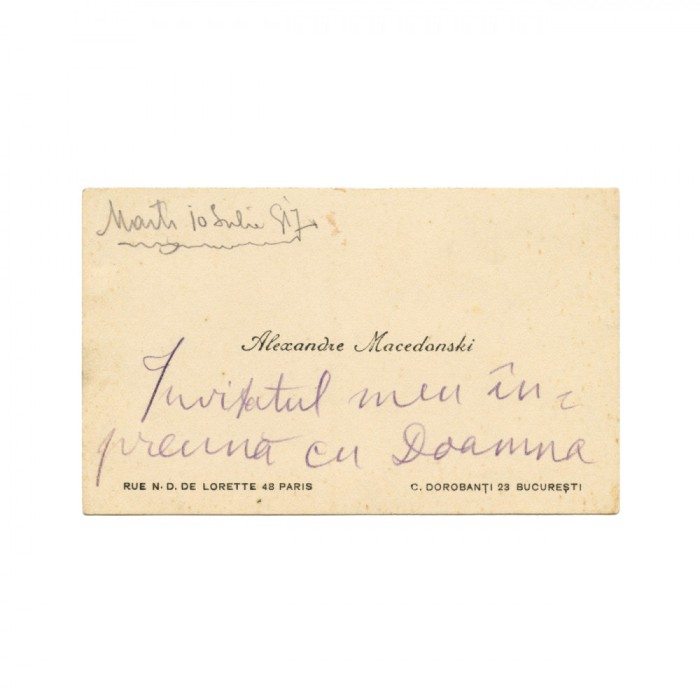 Marti 10 Iulie 917.
Alexandre Macedonski
Invitatul meu în=
preună cu Doamna
RUE N. D. DE LORETTE 48 PARIS
C. DOROBANȚI 23 BUCUREȘTI